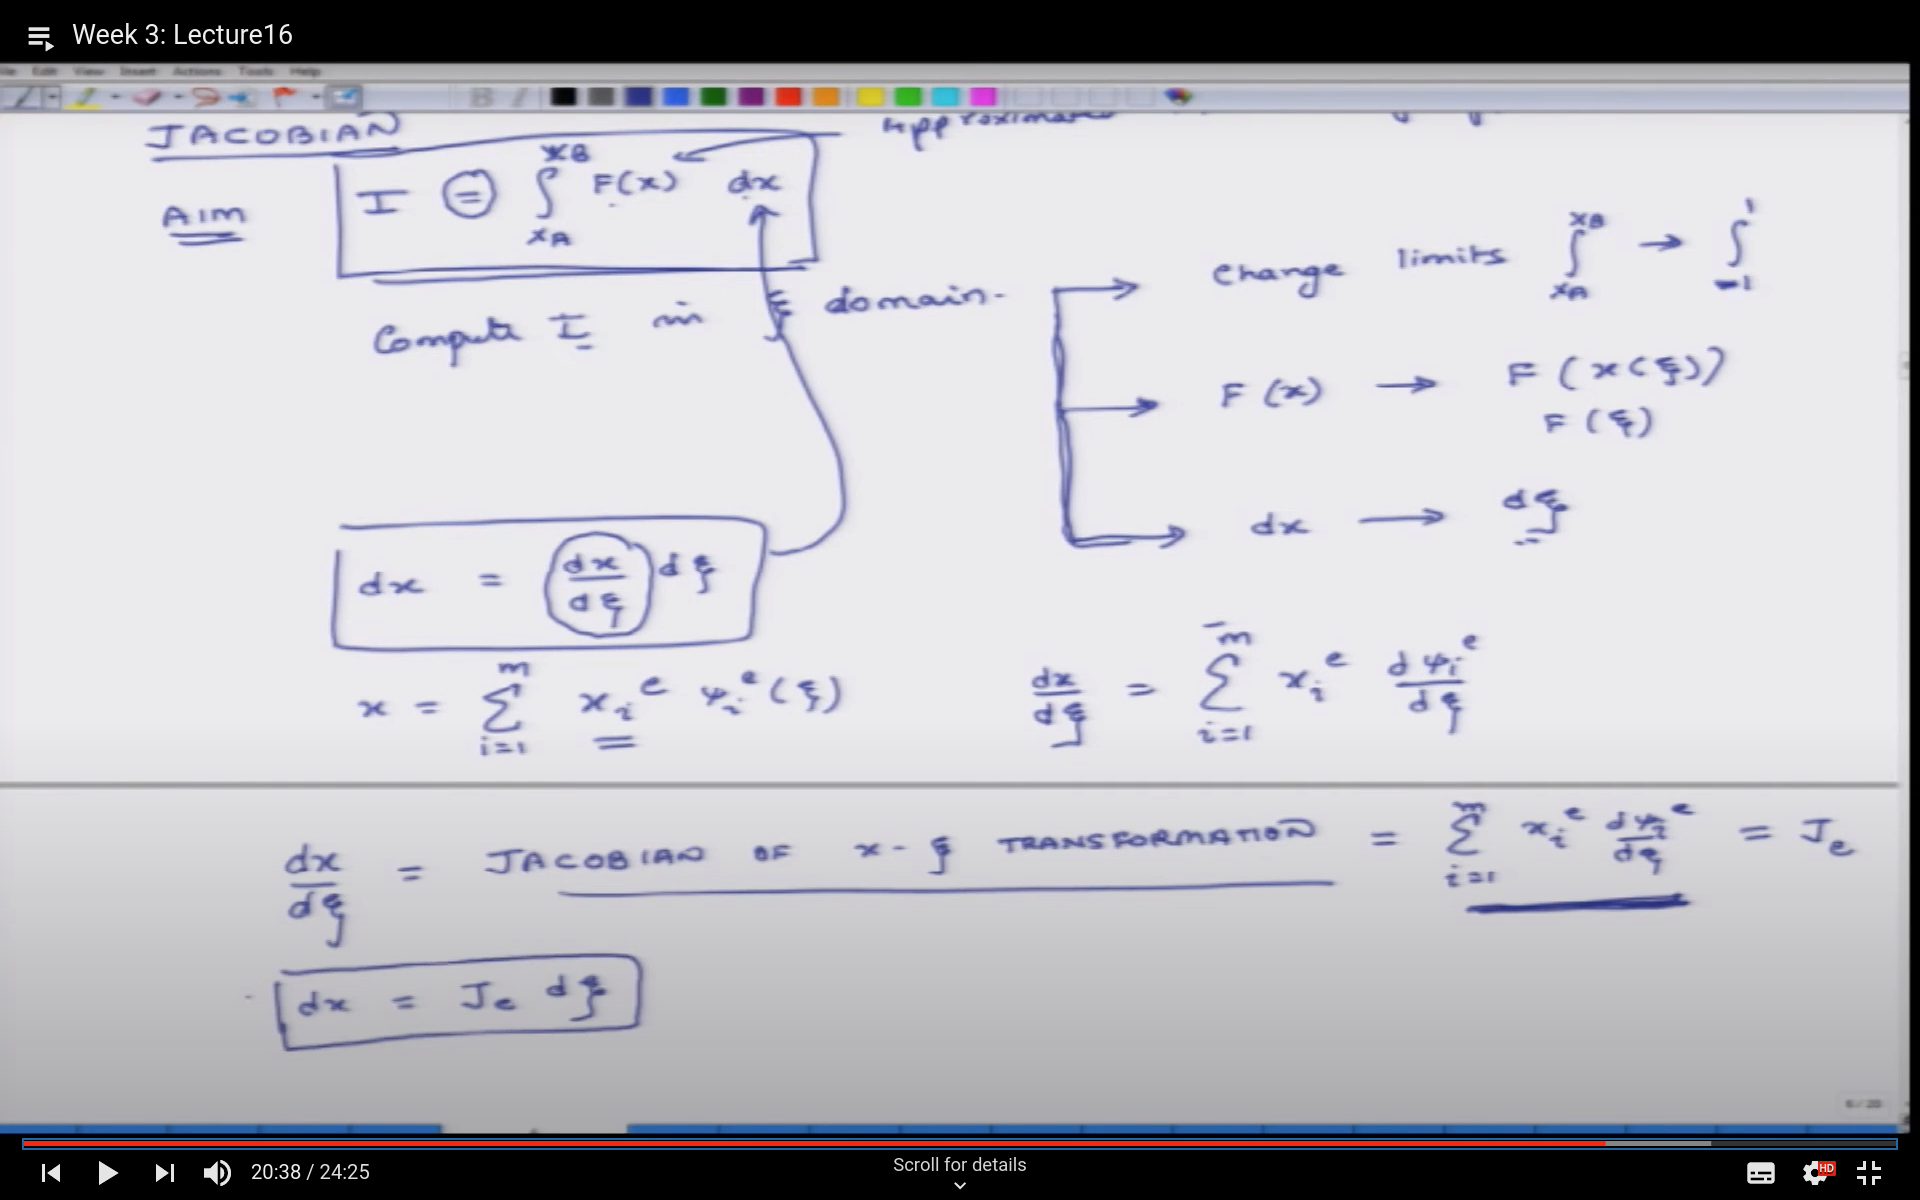 Week 3: Lecture16
File Edit View Insert Actions Tools Help
JACOBIAN
AIM
I = ∫_{x_A}^{x_B} F(x) dx
Compute I in ξ domain.
Change limits ∫_{x_A}^{x_B} → ∫_{-1}^{1}
F(x) → F(x(ξ))
F(ξ)
dx → dξ
dx = (dx/dξ) dξ
x = Σ_{i=1}^{m} x_i^e ψ_i^e(ξ)
dx/dξ = Σ_{i=1}^{m} x_i^e dψ_i^e/dξ
dx/dξ = JACOBIAN OF x-ξ TRANSFORMATION = Σ_{i=1}^{m} x_i^e dψ_i^e/dξ = J_e
dx = J_e dξ
6/20
20:38 / 24:25
Scroll for details
HD